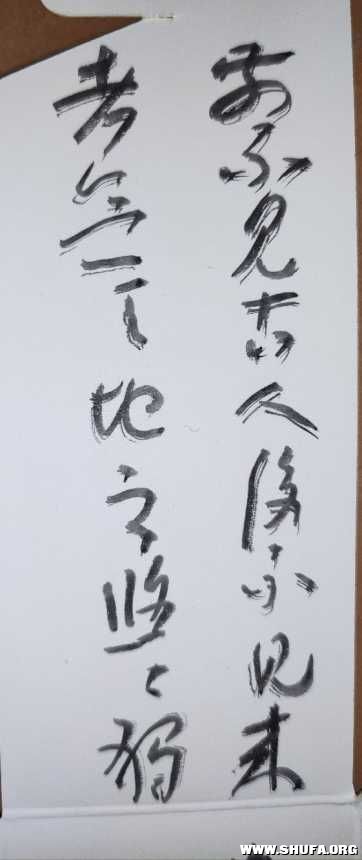 前不見古人後不見来
者念天地之悠々獨
WWW.SHUFA.ORG